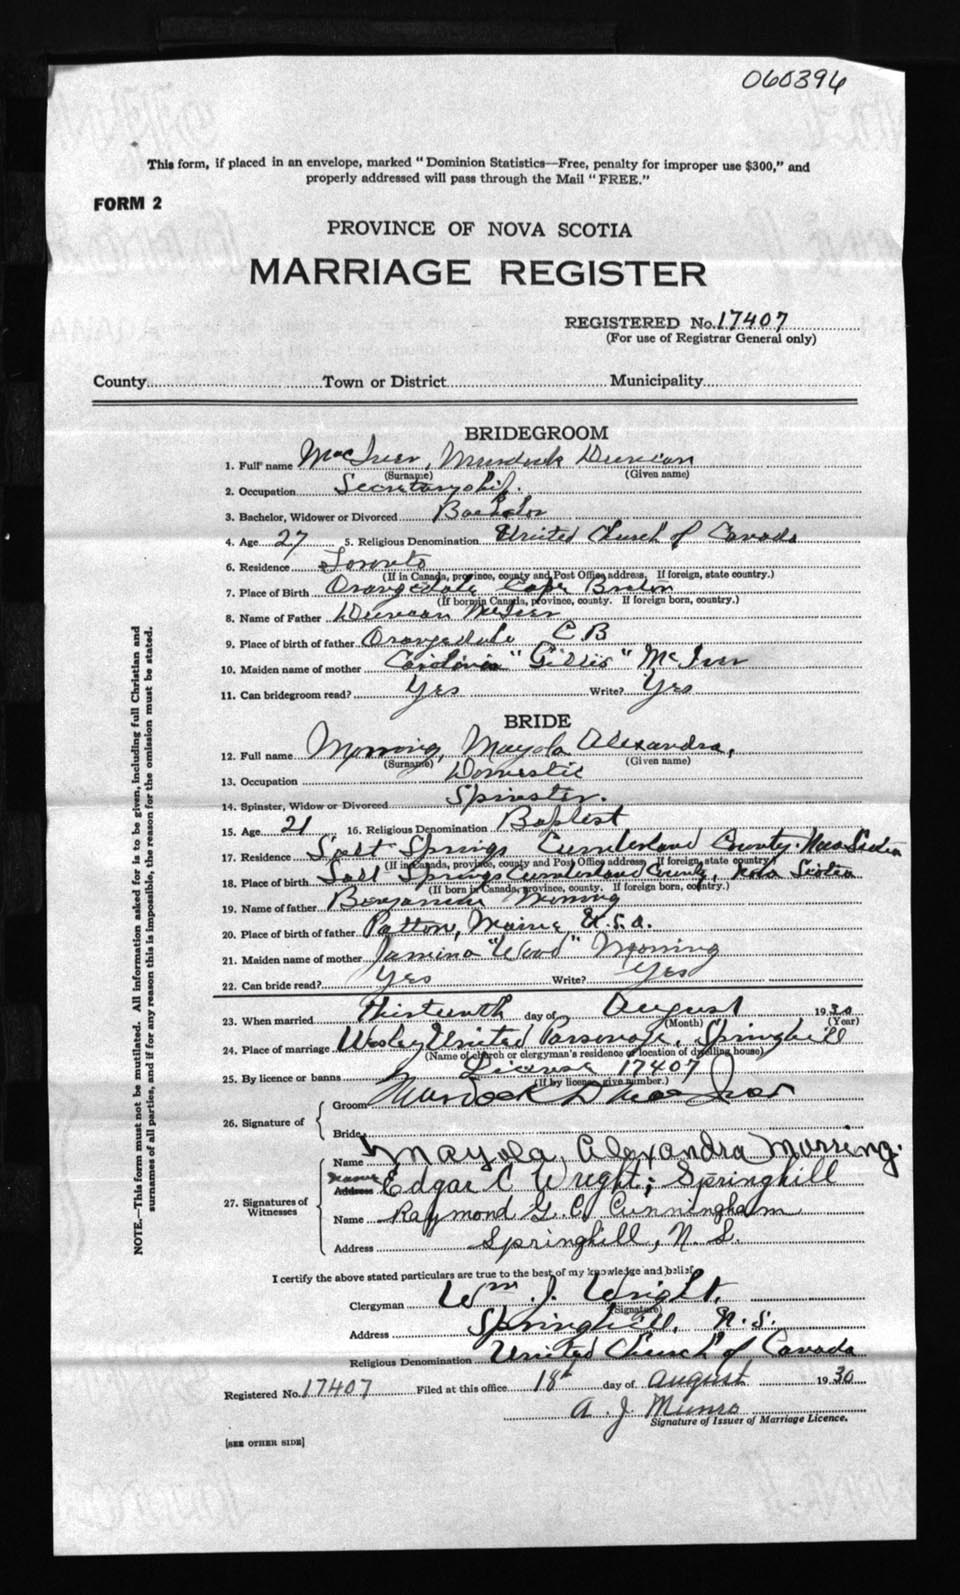 060396
This form, if placed in an envelope, marked "Dominion Statistics—Free, penalty for improper use $300," and
properly addressed will pass through the Mail "FREE."
FORM 2
PROVINCE OF NOVA SCOTIA
MARRIAGE REGISTER
REGISTERED No. 17407
(For use of Registrar General only)
County Town or District Municipality
BRIDEGROOM
1. Full name MacIver, Murdock Duncan
(Surname) (Given name)
2. Occupation
3. Bachelor, Widower or Divorced Bachelor
4. Age 27 5. Religious Denomination United Church of Canada
6. Residence Toronto
(If in Canada, province, county and Post Office address. If foreign, state country.)
7. Place of Birth Orangedale Cape Breton
(If born in Canada, province, county. If foreign born, country.)
8. Name of Father Duncan McIver
9. Place of birth of father Orangedale C B
10. Maiden name of mother "Gillis" McIver
11. Can bridegroom read? Yes Write? Yes
BRIDE
12. Full name Morring, Mayola Alexandra,
(Surname) (Given name)
13. Occupation Domestic
14. Spinster, Widow or Divorced Spinster.
15. Age 21 16. Religious Denomination Baptist
17. Residence Salt Springs Cumberland County. Nova Scotia
(If in Canada, province, county and Post Office address. If foreign, state country)
18. Place of birth Salt Springs Cumberland County, Nova Scotia
(If born in Canada, province, county. If foreign born, country.)
19. Name of father Benjamin Morring
20. Place of birth of father Patton, Maine, U.S.A.
21. Maiden name of mother Jamima "Wood" Morring
22. Can bride read? Yes Write? Yes
23. When married Thirteenth day of August 1930
(Month) (Year)
24. Place of marriage Wesley United Parsonage, Springhill
(Name of church or clergyman's residence or location of dwelling house)
25. By licence or banns License 17407
(If by licence give number.)
26. Signature of Groom Murdock D MacIver
Bride Mayola Alexandra Morring.
27. Signatures of Witnesses
Name
Address Name Edgar C Wright; Springhill
Name Raymond G. C. Cunningham
Address Springhill, N. S.
I certify the above stated particulars are true to the best of my knowledge and belief.
Clergyman Wm. J. Wright.
(Signature)
Address Springhill, N. S.
Religious Denomination United Church of Canada
Registered No. 17407 Filed at this office 18th day of August 1930
A. J. Munro
Signature of Issuer of Marriage Licence.
[SEE OTHER SIDE]
NOTE.—This form must not be mutilated. All information asked for is to be given, including full Christian and
surnames of all parties, and if for any reason this is impossible, the reason for the omission must be stated.